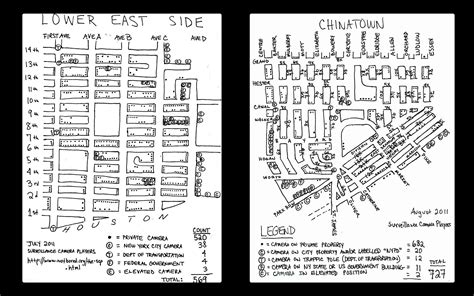 LOWER EAST SIDE
FIRST AVE AVE A AVE B AVE C AVE D
14th
13th
12th
11th
10th
9th
8th
7th
6th
5th
4th
3rd
2d
1st
HOUSTON
JULY 2011
SURVEILLANCE CAMERA PLAYERS
COUNT
• = PRIVATE CAMERA 520
= NEW YORK CITY CAMERA 38
= DEPT OF TRANSPORTATION 4
= FEDERAL GOVERNMENT 3
= ELEVATED CAMERA 4
TOTAL: 569
CHINATOWN
CENTRE
BAXTER
MULBERRY
MOTT
ELIZABETH
BOWERY
CHRYSTIE
FORSYTH
ELDRIDGE
ALLEN
ORCHARD
LUDLOW
ESSEX
GRAND
HESTER
CANAL
WORTH
PARK ROW
August 2011
Surveillance Camera Players
LEGEND
• = CAMERA ON PRIVATE PROPERTY 682
= CAMERA ON CITY PROPERTY AND/OR LABELLED "NYPD" 20
= CAMERA ON TRAFFIC POLE (DEPT OF TRANSPORTATION) 12
= CAMERA ON NY STATE OR US GOVERNMENT BUILDING 11
= CAMERA IN ELEVATED POSITION 2
TOTAL 727